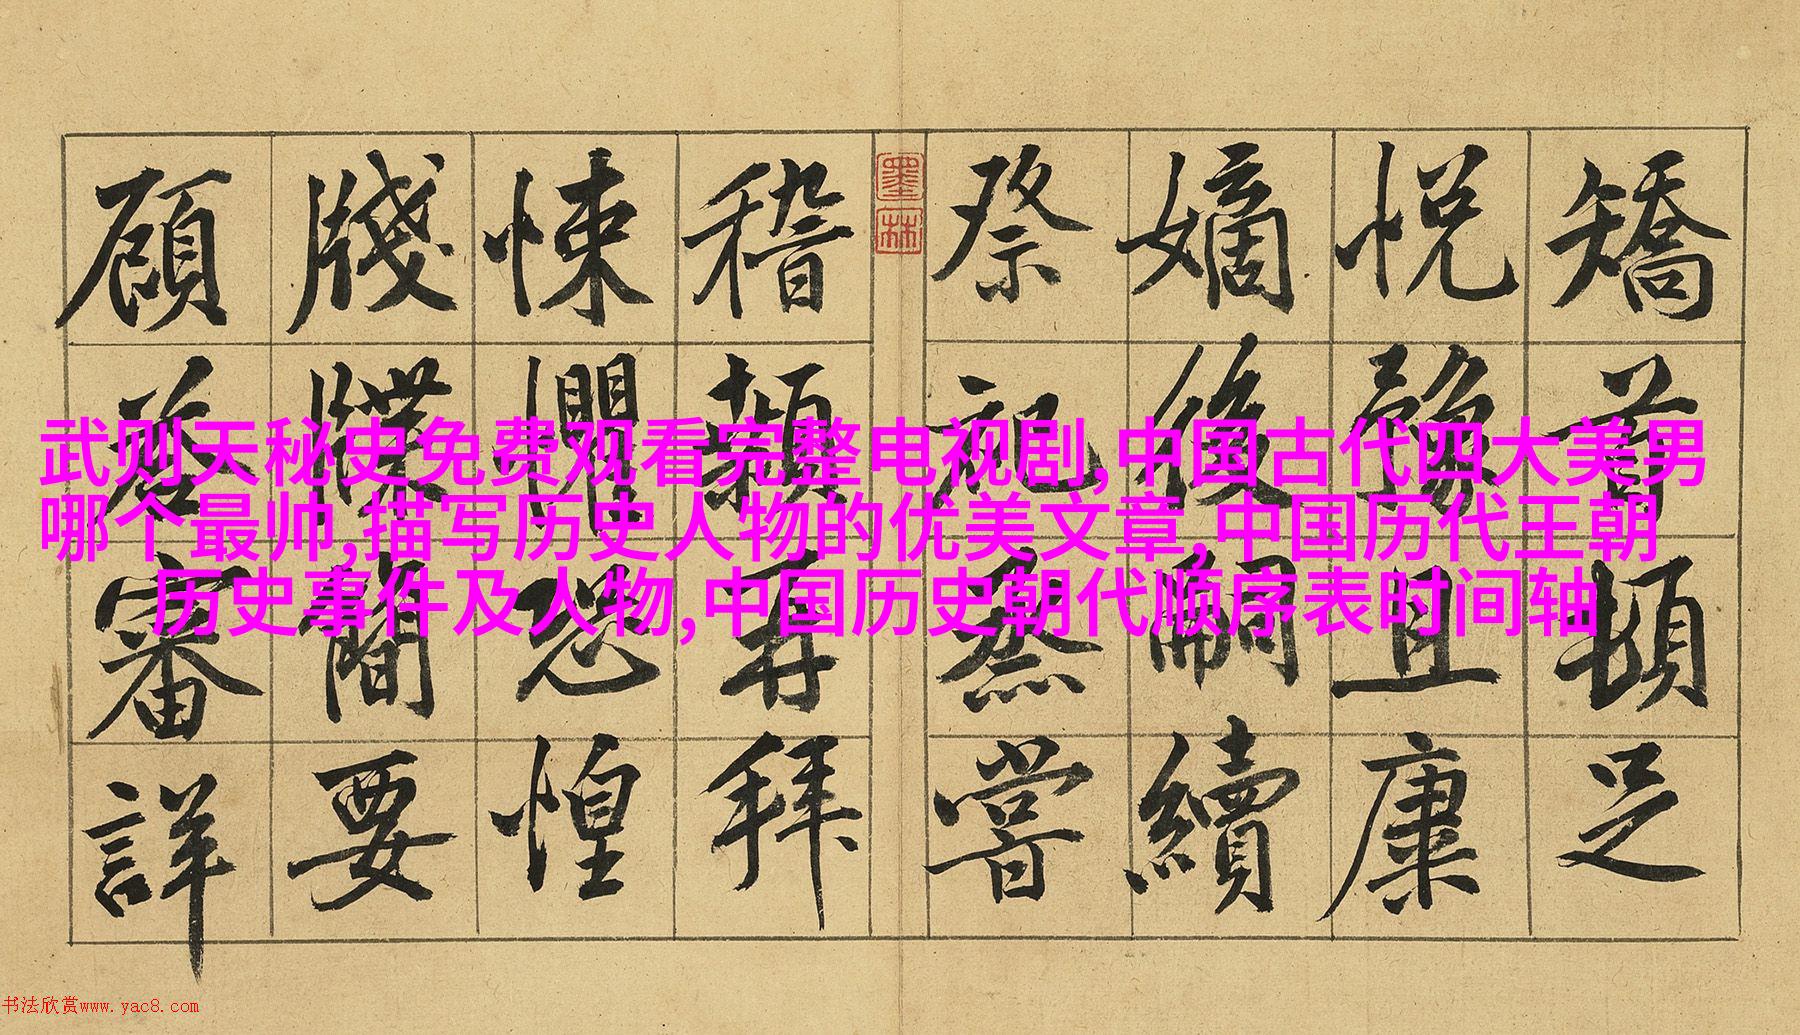 矯手頓足
悅豫且康
嫡後嗣續
祭祀蒸嘗
墨林
稽顙再拜
悚懼恐惶
牋牒簡要
顧荅審詳
武则天秘史免费观看完整电视剧,中国古代四大美男
哪个最帅,描写历史人物的优美文章,中国历代王朝
历史事件及人物,中国历史朝代顺序表时间轴
书法欣赏www.yac8.com